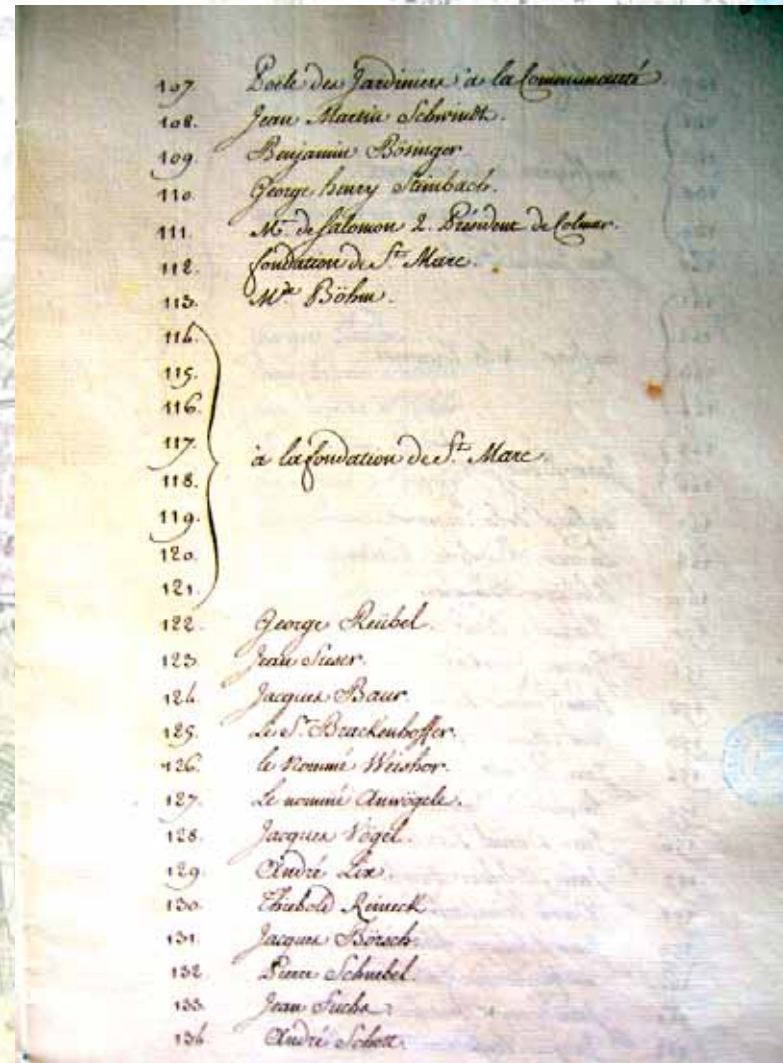 107. Poele des Jardiniers à la Communauté.
108. Jean Martin Schwindt.
109. Benjamin Bösinger
110. George henry Steinbach.
111. Mr. de Salomon 2. Président de Colmar.
112. fondation de St. Marc.
113. Mde Böhm.
114.
115.
116.
117. à la fondation de St. Marc.
118.
119.
120.
121.
122. George Reübel.
123. Jean Suser.
124. Jacques Baur.
125. Le Sr. Brackenhoffer.
126. le Nommé Weishor.
127. Le nommé Anwögele.
128. Jacques Vögel.
129. André Lix.
130. Thiebold Reineck
131. Jacques Börsch.
132. Pierre Schnebel.
133. Jean Fuchs.
134. André Schott.